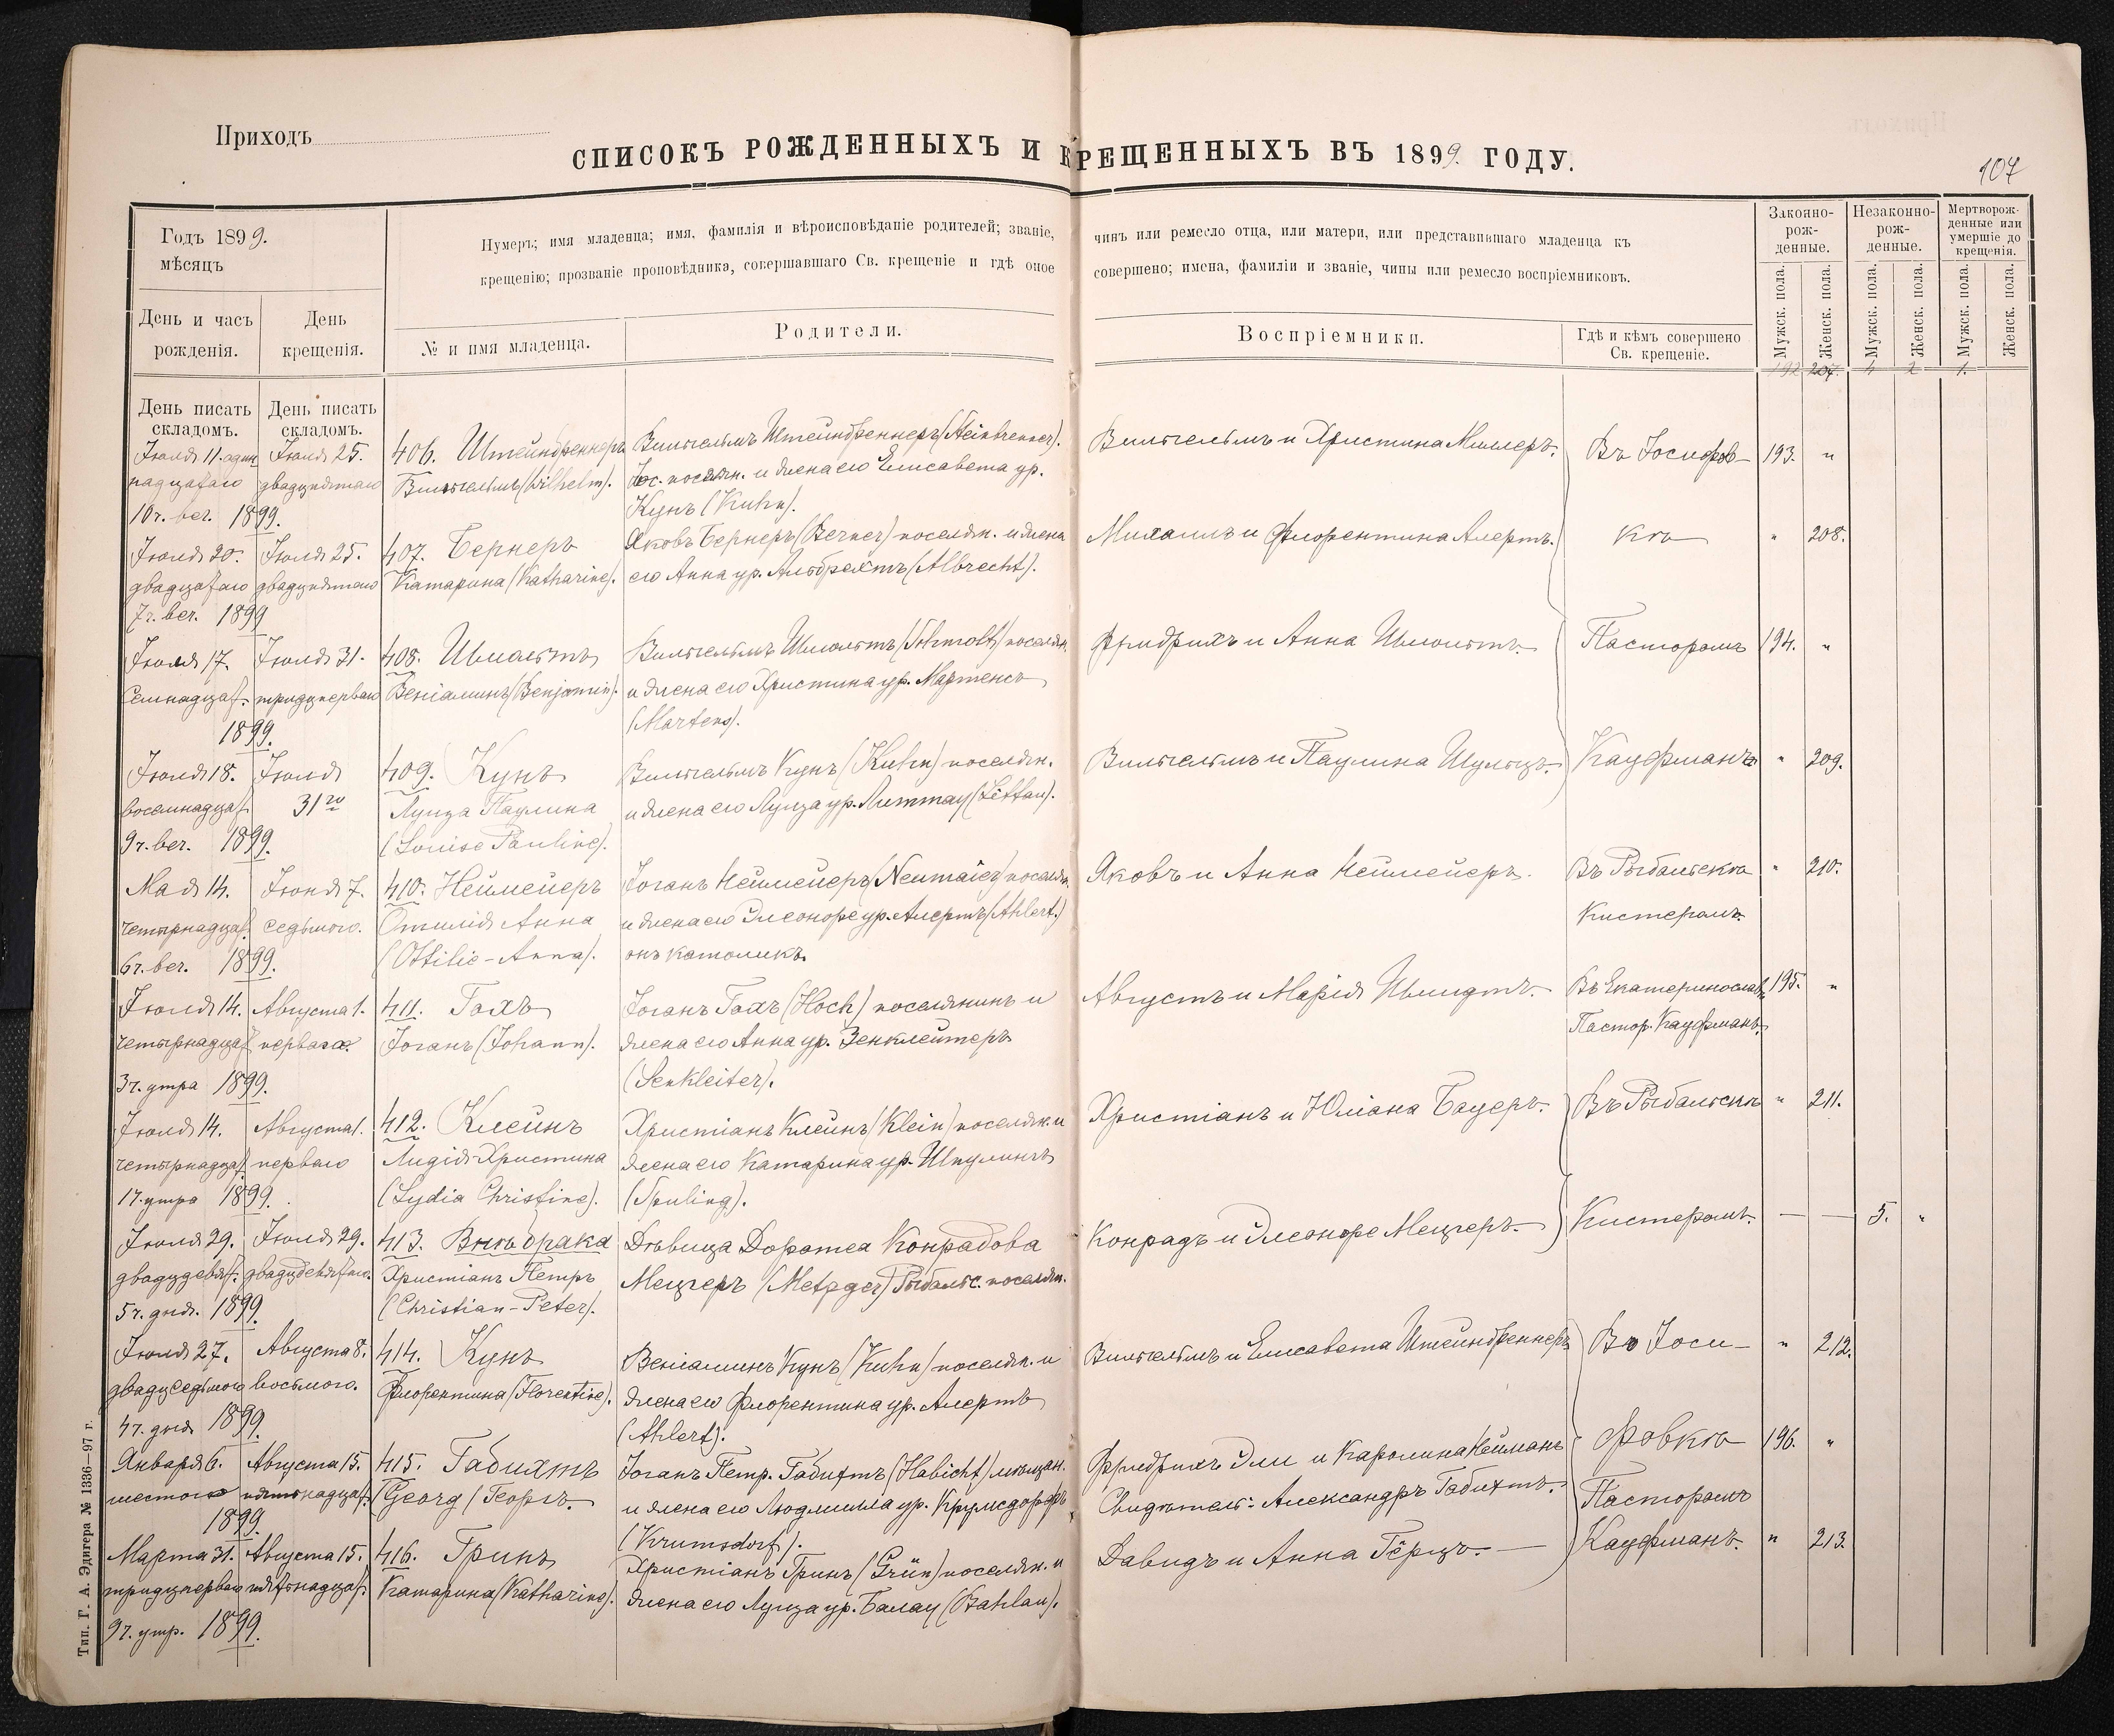 Приходъ
СПИСОКЪ РОЖДЕННЫХЪ И КРЕЩЕННЫХЪ ВЪ 1899. ГОДУ.
107
Годъ 1899.
мѣсяцъ
День и часъ
рожденія.
День
крещенія.
Нумеръ; имя младенца; имя, фамилія и вѣроисповѣданіе родителей; званіе, чинъ или ремесло отца, или матери, или представившаго младенца къ
крещенію; прозваніе проповѣдника, совершавшаго Св. крещеніе и гдѣ оное совершено; имена, фамиліи и званіе, чины или ремесло воспріемниковъ.
№ и имя младенца.
Родители.
Воспріемники.
Гдѣ и кѣмъ совершено
Св. крещеніе.
Законно-
рож-
денные.
Незаконно-
рож-
денные.
Мертворож-
денные или
умершіе до
крещенія.
Мужск. пола.
Женск. пола.
Мужск. пола.
Женск. пола.
Мужск. пола.
Женск. пола.
192 207. 4 2 1.
День писать
складомъ.
День писать
складомъ.
Іюля 11. один
надцатаго
10ч. веч. 1899.
Іюля 25.
двадцпятаго
406. Штейнбреннеръ
Вильгельмъ (Wilhelm).
Вильгельмъ Штейнбреннеръ (Steinbrenner).
Іос. поселян. и жена его Елисавета ур.
Кунъ (Kuhn).
Вильгельмъ и Христина Миллеръ.
Въ Іосифов-
193. "
Іюля 20.
двадцатаго
7ч. веч. 1899
Іюля 25.
двадцпятаго
407. Бернеръ
Катарина (Katharine).
Яковъ Бернеръ (Berner) поселян. и жена
его Анна ур. Альбрехтъ (Albrecht).
Михаилъ и Флорентина Алертъ.
кѣ
" 208.
Іюля 17.
Семнадцат.
1899.
Іюля 31.
тридцперваго
408. Шмольтъ
Веніаминъ (Benjamin).
Вильгельмъ Шмольтъ (Schmolt) поселян.
и жена его Христина ур. Мартенсъ
(Martens).
Фридрихъ и Анна Шмольтъ.
Пасторомъ
194. "
Іюля 18.
восемнадцат.
9ч. веч. 1899.
Іюля
31го
409. Кунъ
Луиза Паулина
(Louise Pauline).
Вильгельмъ Кунъ (Kuhn) поселян.
и жена его Луиза ур. Литтау (Littau).
Вильгельмъ и Паулина Шульцъ.
Кауфманъ
" 209.
Мая 14.
четырнадцат.
6ч. веч. 1899.
Іюня 7.
седьмого.
410. Неймейеръ
Отилія Анна
(Ottilie-Anna).
Іоганъ Неймейеръ (Neumaier) поселян.
и жена его Элеоноре ур. Алертъ (Ahlert.)
онъ католикъ.
Яковъ и Анна Неймейеръ.
Въ Рыбальскѣ
Кистеромъ.
" 210.
Іюля 14.
четырнадцат.
3ч. утра 1899.
Августа 1.
перваго.
411. Гохъ
Іоганъ (Johann).
Іоганъ Гохъ (Hoch) поселянинъ и
жена его Анна ур. Зенклейтеръ
(Senkleiter).
Августъ и Марія Шмидтъ.
Въ Екатеринославѣ
Пастор. Кауфманъ.
195. "
Іюля 14.
четырнадцат.
1ч. утра 1899.
Августа 1.
перваго
412. Клейнъ
Лидія Христина
(Lydia Christine).
Христіанъ Клейнъ (Klein) поселян. и
жена его Катарина ур. Шпулингъ
(Spuling).
Христіанъ и Юліана Бауеръ.
Въ Рыбальскѣ
" 211.
Іюля 29.
двадцдевят.
5ч. дня. 1899.
Іюля 29.
двадцдевятаго.
413. Внѣ брака
Христіанъ Петръ
(Christian-Peter).
Дѣвица Доротеа Конрадова
Мецгеръ (Metzger) Рыбальс. поселян.
Конрадъ и Элеоноре Мецгеръ.
Кистеромъ.
— — 5. "
Іюля 27.
двадцседьмого
4ч. дня 1899.
Августа 8.
восьмого.
414. Кунъ
Флорентина (Florentine).
Веніаминъ Кунъ (Kuhn) поселян. и
жена его Флорентина ур. Алертъ
(Ahlert).
Вильгельмъ и Елисавета Штейнбреннеръ
Въ Іоси-
" 212.
Января 6.
шестого
1899.
Августа 15.
пятнадцат.
415. Габихтъ
(Georg) Георгъ.
Іоганъ Петр. Габихтъ (Habicht) мѣщан.
и жена его Людмилла ур. Крумсдорфъ
(Krumsdorf).
Фридрихъ Эли и Каролина Нейманъ
Свидѣтель: Александръ Габихтъ.
фовкѣ
Пасторомъ
196. "
Марта 31.
тридцперваго
9ч. утр. 1899.
Августа 15.
пятнадцат.
416. Гринъ
Катарина (Katharine).
Христіанъ Гринъ (Grün) поселян. и
жена его Луиза ур. Балау (Bahlau).
Давидъ и Анна Гёрцъ.
Кауфманъ.
" 213.
Тип. Г. А. Эдигера № 1336—97 г.